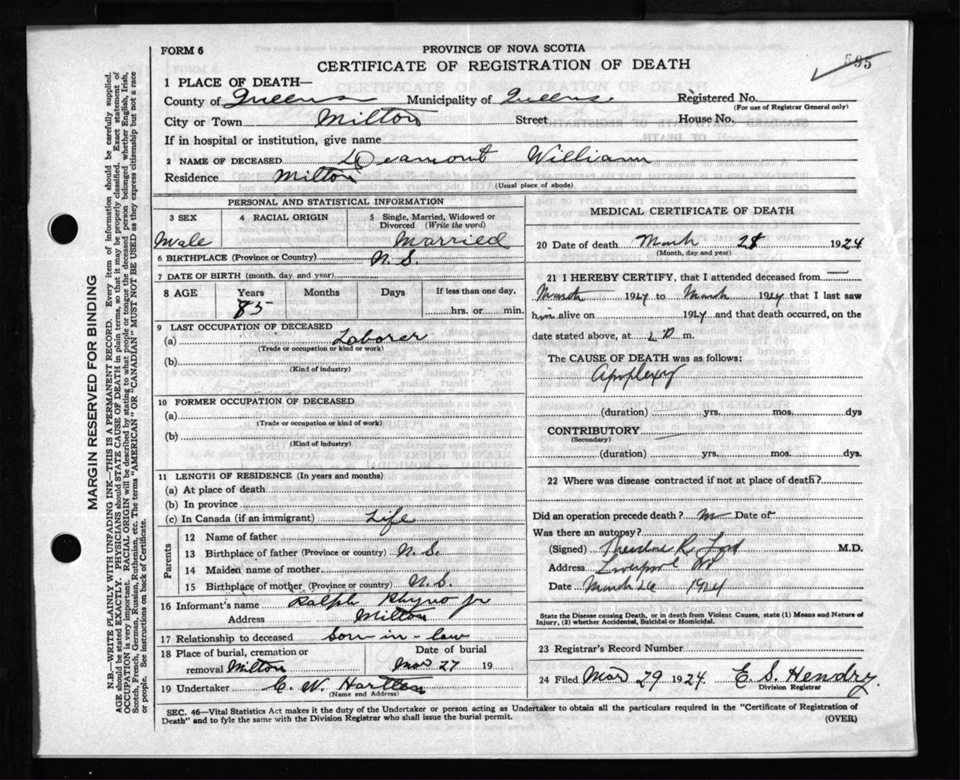 FORM 6
PROVINCE OF NOVA SCOTIA
CERTIFICATE OF REGISTRATION OF DEATH
595
1 PLACE OF DEATH—
County of Queens Municipality of Queens Registered No.
(For use of Registrar General only)
City or Town Milton Street House No.
If in hospital or institution, give name
2 NAME OF DECEASED Deamont William
Residence Milton
(Usual place of abode)
PERSONAL AND STATISTICAL INFORMATION
3 SEX 4 RACIAL ORIGIN 5 Single, Married, Widowed or Divorced (Write the word)
Male Married
6 BIRTHPLACE (Province or Country) N.S.
7 DATE OF BIRTH (month, day and year)
8 AGE Years Months Days If less than one day,
85 hrs. or min.
9 LAST OCCUPATION OF DECEASED
(a) Laborer
(Trade or occupation or kind or work)
(b)
(Kind of industry)
10 FORMER OCCUPATION OF DECEASED
(a)
(Trade or occupation or kind of work)
(b)
(Kind of industry)
11 LENGTH OF RESIDENCE (In years and months)
(a) At place of death
(b) In province
(c) In Canada (if an immigrant) Life
Parents
12 Name of father
13 Birthplace of father (Province or country) N.S.
14 Maiden name of mother
15 Birthplace of mother (Province or country) N.S.
16 Informant's name Ralph Rhyno jr
Address Milton
17 Relationship to deceased son-in-law
18 Place of burial, cremation or removal Milton Date of burial Mar 27 19
19 Undertaker C. W. Hartlen
(Name and Address)
MEDICAL CERTIFICATE OF DEATH
20 Date of death March 25 1924
(Month, day and year)
21 I HEREBY CERTIFY, that I attended deceased from
March 1924 to March 1924 that I last saw
him alive on 1924 and that death occurred, on
date stated above, at m.
The CAUSE OF DEATH was as follows:
Apoplexy
(duration) yrs. mos. dys
CONTRIBUTORY
(Secondary)
(duration) yrs. mos. dys.
22 Where was disease contracted if not at place of death?
Did an operation precede death? Date of
Was there an autopsy?
(Signed) Theodore R. Ford M.D.
Address Liverpool NS
Date March 26 1924
State the Disease causing Death, or in death from Violent Causes, state (1) Means and Nature of
Injury, (2) whether Accidental, Suicidal or Homicidal.
23 Registrar's Record Number
24 Filed Mar 29 1924. E. S. Hendry.
Division Registrar
SEC. 46—Vital Statistics Act makes it the duty of the Undertaker or person acting as Undertaker to obtain all the particulars required in the "Certificate of Registration of
Death" and to fyle the same with the Division Registrar who shall issue the burial permit. (OVER)
MARGIN RESERVED FOR BINDING
N.B.—WRITE PLAINLY WITH UNFADING INK—THIS IS A PERMANENT RECORD. Every item of information should be carefully supplied.
AGE should be stated EXACTLY. PHYSICIANS should STATE CAUSE OF DEATH in plain terms, so that it may be properly classified. Exact statement of
OCCUPATION is very important. RACIAL ORIGIN will be described by stating to what people or tongue the deceased person belonged whether English, Irish,
Scotch, French, German, Russian, Ruthenian, etc. The terms "AMERICAN" OR "CANADIAN" MUST NOT BE USED as they express citizenship but not a race
or people. See instructions on back of Certificate.